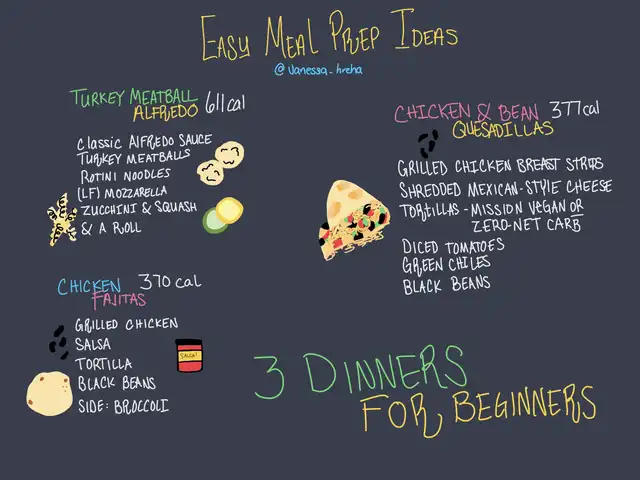 EASY MEAL PREP IDEAS
@vanessa_hreha
TURKEY MEATBALL
ALFREDO 611 cal
Classic ALFREDO SAUCE
TURKEY MEATBALLS
ROTINI NOODLES
(LF) MOZZARELLA
ZUCCHINI & SQUASH
& A ROLL
CHICKEN & BEAN 377 cal
QUESADILLAS
GRILLED CHICKEN BREAST STRIPS
SHREDDED MEXICAN-STYLE CHEESE
TORTILLAS - MISSION VEGAN OR
ZERO-NET CARB
DICED TOMATOES
GREEN CHILES
BLACK BEANS
CHICKEN 370 cal
FAJITAS
GRILLED CHICKEN
SALSA
TORTILLA
BLACK BEANS
SIDE: BROCCOLI
SALSA!
3 DINNERS
FOR BEGINNERS